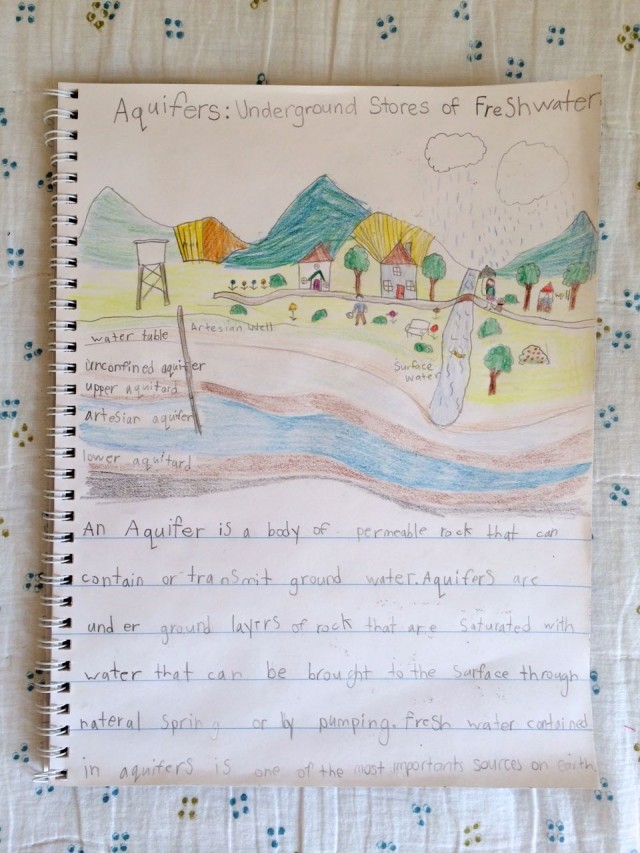 Aquifers: Underground Stores of Freshwater
Artesian Well
water table
unconfined aquifer
upper aquitard
Surface
water
artesian aquifer
lower aquitard
An Aquifer is a body of permeable rock that can
contain or transmit ground water. Aquifers are
under ground layirs of rock that are saturated with
water that can be brought to the surface through
nateral spring or by pumping. Fresh water contained
in aquifers is one of the most importants sources on earth